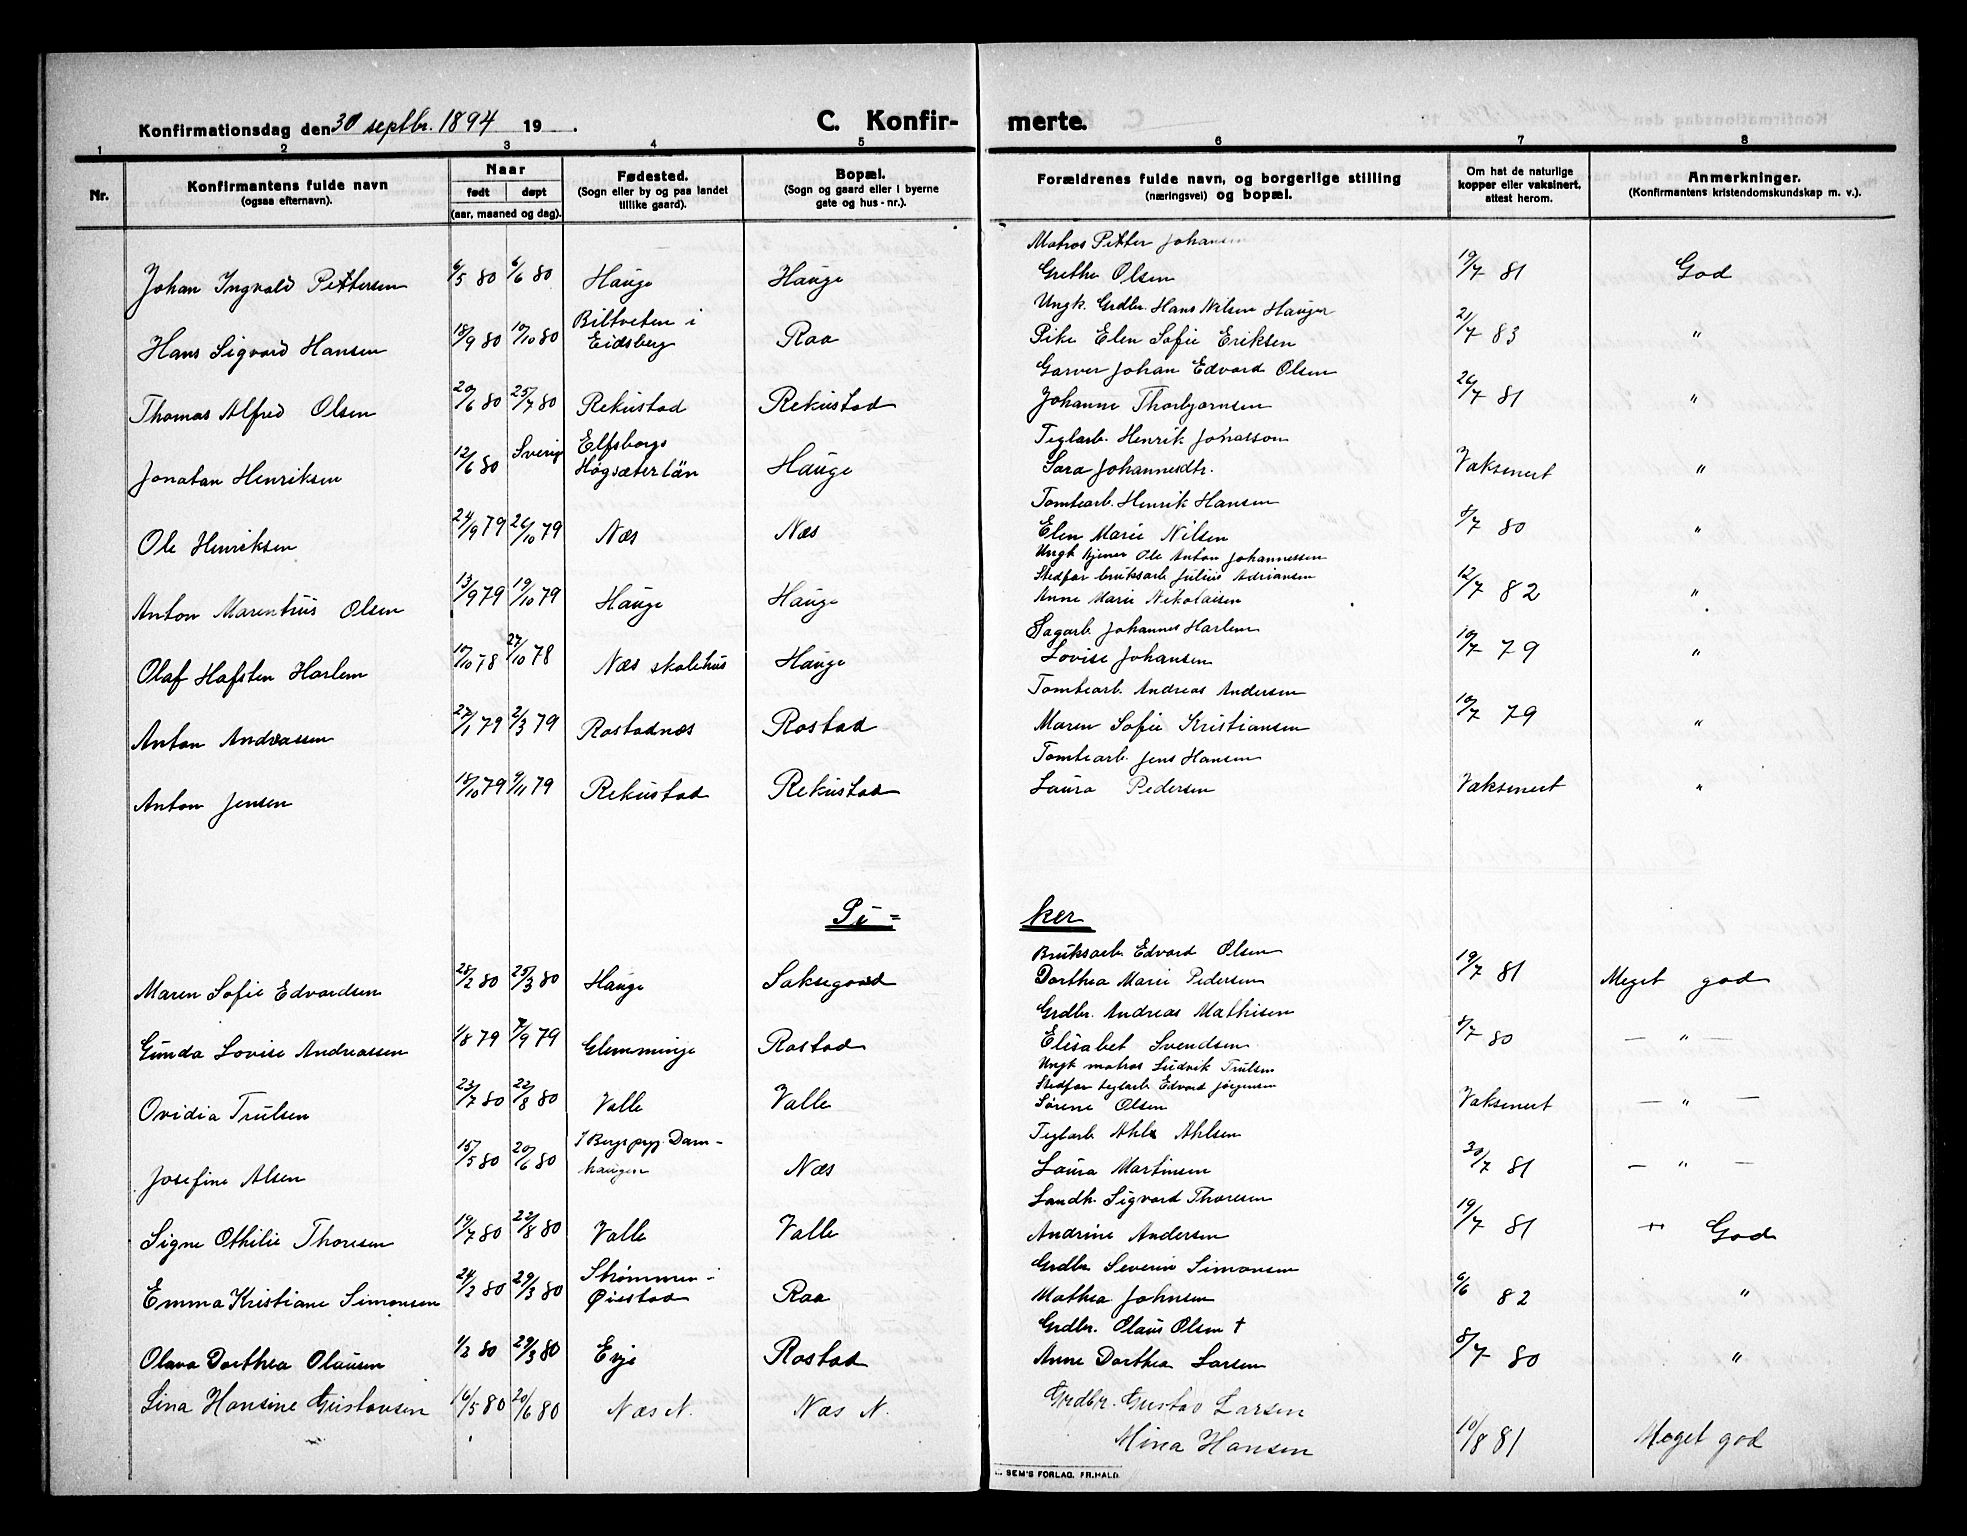 Konfirmationsdag den 30 septbr. 1894 19 .
C. Konfir- merte.
1 2 3 4 5 6 7 8
Nr.
Konfirmantens fulde navn
(ogsaa efternavn).
Naar
født døpt
(aar, maaned og dag).
Fødested.
(Sogn eller by og paa landet
tillike gaard).
Bopæl.
(Sogn og gaard eller i byerne
gate og hus-nr.).
Forældrenes fulde navn, og borgerlige stilling
(næringsvei) og bopæl.
Om hat de naturlige
kopper eller vaksinert,
attest herom.
Anmerkninger.
(Konfirmantens kristendomskundskap m. v.).
Matros Petter Johansen
Johan Ingvald Pettersen 6/5 80 6/6 80 Hauge Hauge Grethe Olsen 19/7 81 God
Ungk. Grdbr. Hans Nilsen Hauger
Hans Sigvard Hansen 18/9 80 17/10 80 Biltveten i Eidsberg Raa Pike Elen Sofie Eriksen 21/7 83 "
Garver Johan Edvard Olsen
Thomas Alfred Olsen 20/6 80 25/7 80 Rekustad Rekustad Johanne Thorbjørnsen 26/7 81 "
Teglarb. Henrik Jonasson
Jonatan Henriksen 12/6 80 Sverig Elfsborgs Høgsæter län Hauge Sara Johannesdtr. Vaksinert "
Tomtearb. Henrik Hansen
Ole Henriksen 24/9 79 26/10 79 Næs Næs Elen Marie Nilsen 8/7 80 "
Ungk tjener Ole Anton Johannessen
Stedfar bruksarb Julius Adriansen
Anton Marentius Olsen 13/9 79 19/10 79 Hauge Hauge Anne Marie Nikolaisen 12/7 82 "
Sagarb. Johannes Harlem
Olaf Hafsten Harlem 17/10 78 27/10 78 Næs skolehus Hauge Lovise Johansen 10/7 79 "
Tomtearb. Andreas Andersen
Anton Andreassen 27/1 79 2/3 79 Rostadnæs Rostad Maren Sofie Kristiansen 10/7 79 "
Tomtearb. Jens Hansen
Anton Jensen 18/10 79 9/11 79 Rekustad Rekustad Laura Pedersen Vaksinert "
Pi- ker
Bruksarb Edvard Olsen
Maren Sofie Edvardsen 28/2 80 25/3 80 Hauge Saksegaard Dorthea Marie Pedersen 19/7 81 Meget god
Grdbr. Andreas Mathisen
Gunda Lovise Andreassen 1/8 79 7/9 79 Glemminge Rostad Elisabet Svendsen 8/7 80 — " —
Ungk matros Ludvik Trulsen
Stedfar teglarb Edvard Jørgensen
Ovidia Trulsen 23/7 80 22/8 80 Valle Valle Sørene Olsen Vaksinert — " —
Teglarb Ahls Ahlsen
Josefine Alsen 15/5 80 20/6 80 I Bergs pgj. Damhaugen Næs Laura Martinsen 30/7 81 — " —
Landh. Sigvard Thoresen
Signe Othilie Thoresen 19/7 80 22/8 80 Valle Valle Andrine Andersen 19/7 81 God
Grdbr Severin Simonsen
Emma Kristiane Simonsen 24/2 80 29/3 80 Strømmen i Øiestad Raa Mathea Johnsen 6/6 82 "
Grdbr. Olaus Olsen †
Olava Dorthea Olausen 1/2 80 29/3 80 Evje Rostad Anne Dorthea Larsen 8/7 80 "
Lina Hansine Gustavsen 16/5 80 20/6 80 Næs N. Næs N. Grdbr. Gustav Larsen
Mina Hansen 10/8 81 Meget god
SEM'S FORLAG, FR.HALD.